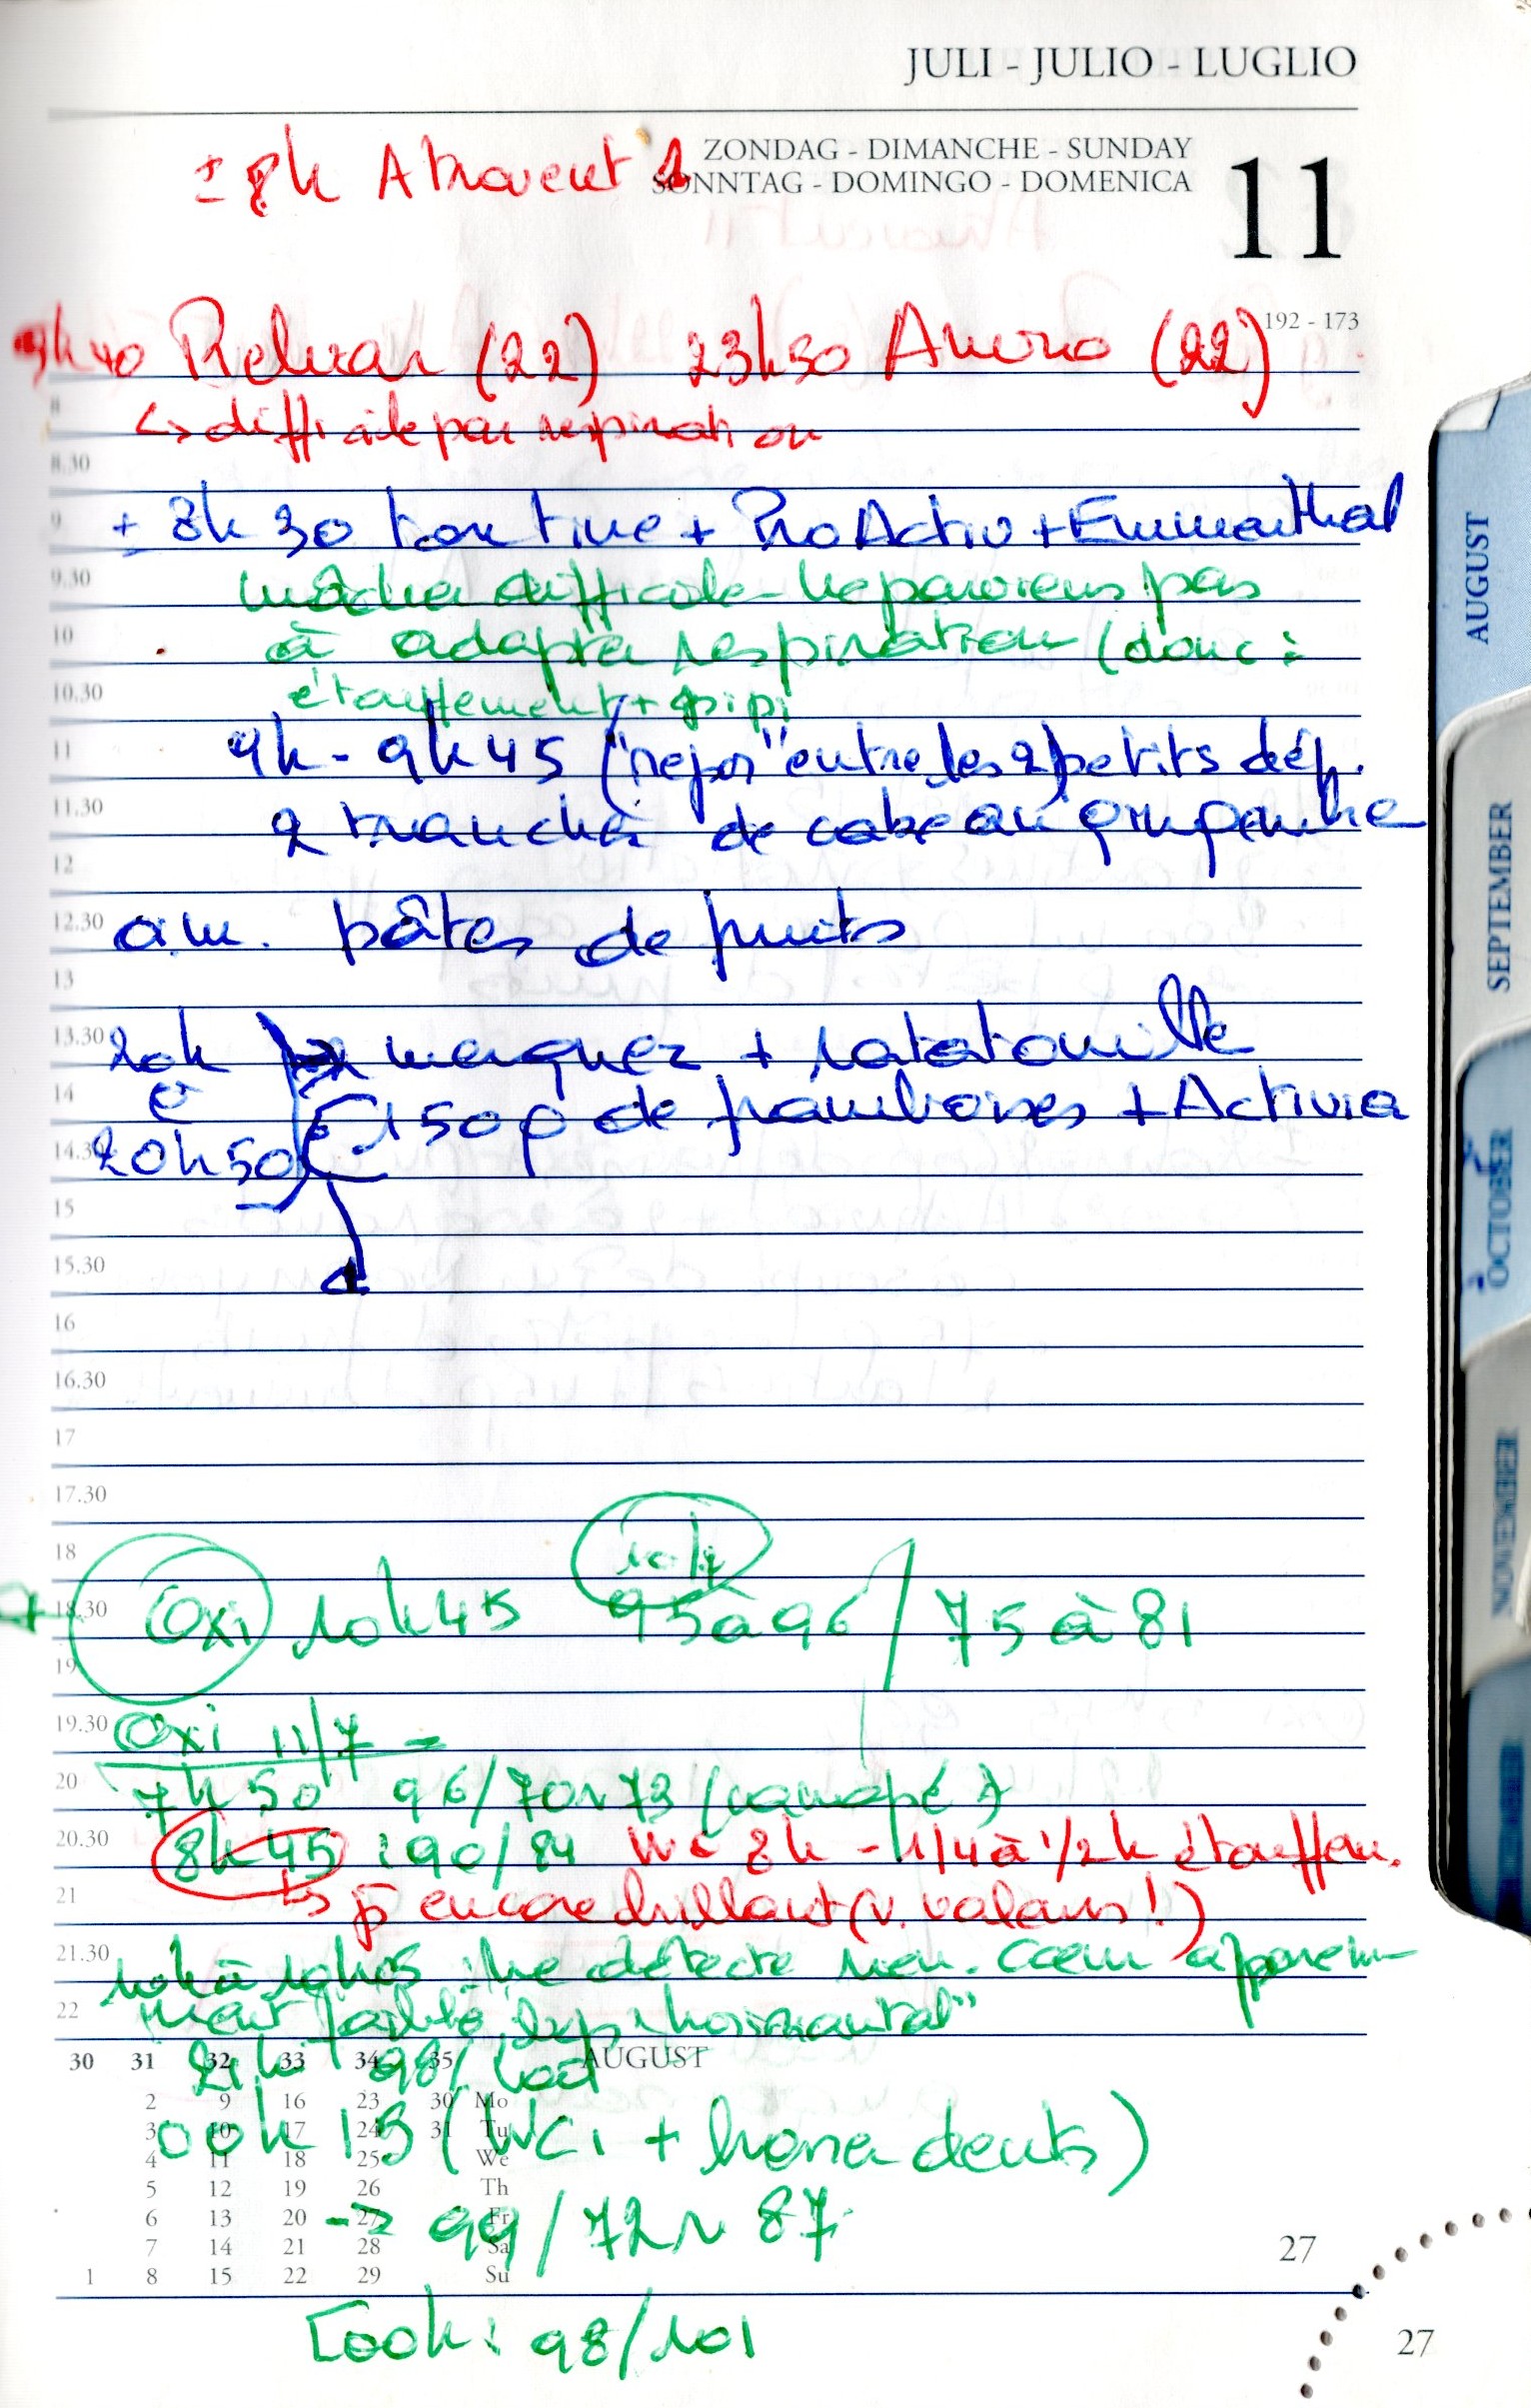 JULI - JULIO - LUGLIO
ZONDAG - DIMANCHE - SUNDAY
SONNTAG - DOMINGO - DOMENICA
11
192 - 173
± 8h Atrovent 1
9h40 Relvar (22) 23h30 Anoro (22)
↳ difficile par respiration
8
8.30
9
± 8h30 tartine + ProActiv + Emmenthal
9.30
mâcher difficile - ne parviens pas
10
à adapter respiration (donc :
10.30
étouffement + pipi
11
9h - 9h45 ("repos" entre les 2 petits déj.
11.30
2 tranches de cake au
12
12.30
a.m. pâtes de fruits
13
13.30
20h 2 merguez + ratatouille
14
à 150 g de framboises + Activia
14.30
20h50
15
15.30
16
16.30
17
17.30
18
10/7
18.30
Oxi 10h45 95 à 96 / 75 à 81
19
19.30
Oxi 11/7
20
7h50 96/70 ~ 73 (canapé)
20.30
8h45 : 90/84 WC 8h - 1/4 à 1/2 h étouffem.
21
↳ encore brillant (v. valeurs !)
21.30
10h à 10h05 : ne détecte rien. Coeur apparem-
22
ment faible, horizontal"
30 31 32 33 34 35 AUGUST
21h 98/100
2 9 16 23 30 Mo
3 10 17 24 31 Tu
00h15 (WC + brosser dents)
4 11 18 25 We
5 12 19 26 Th
6 13 20 27 Fr
→ 99/72 ~ 87
7 14 21 28 Sa
27
1 8 15 22 29 Su
00h : 98/101
27
AUGUST
SEPTEMBER
OCTOBER
NOVEMBER